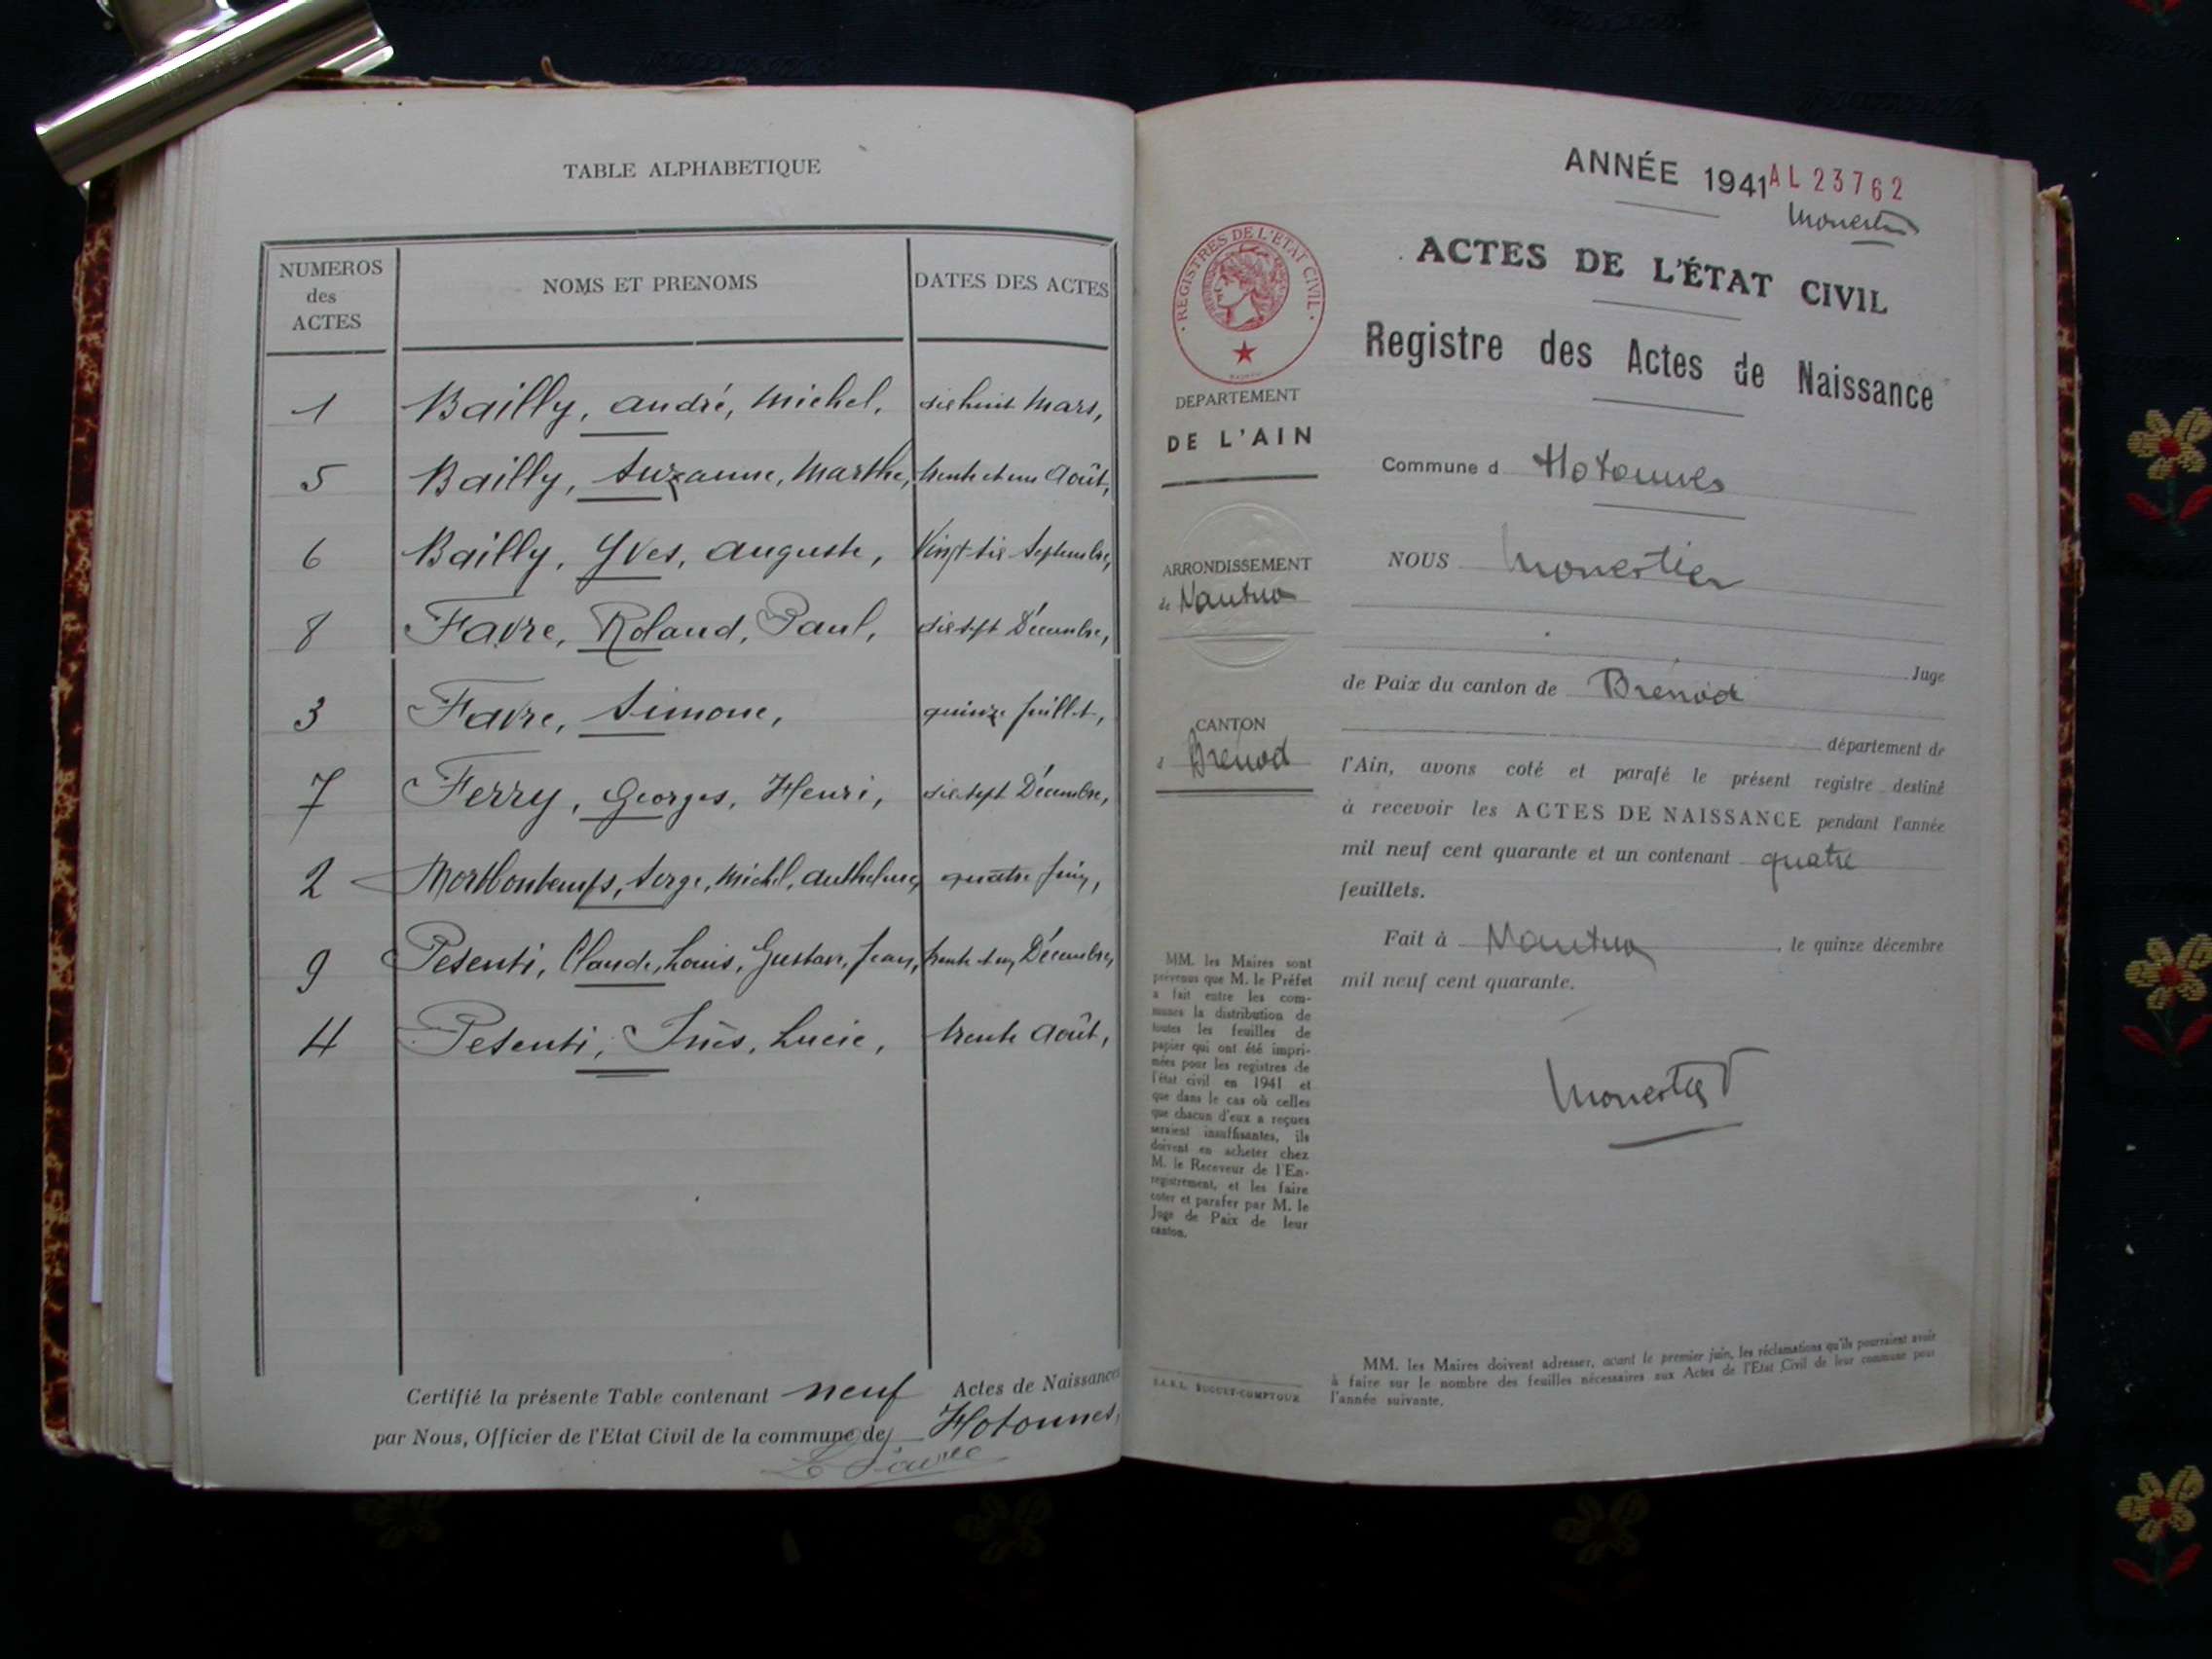 TABLE ALPHABETIQUE
NUMEROS
des
ACTES
NOMS ET PRENOMS
DATES DES ACTES
1 Bailly, andré, Michel, dix huit Mars,
5 Bailly, Suzanne, Marthe, trente et un Août,
6 Bailly, Yves, auguste, Vingt six Septembre,
8 Favre, Roland, Paul, dix sept Décembre,
3 Favre, Simone, quinze Juillet,
7 Ferry, Georges, Henri, dix sept Décembre,
2 Morthontemps, Serge, Michel, anthelme, quatre Juin,
9 Pesenti, Claude, Louis, Gustave, Jean, trente et un Décembre,
4 Pesenti, Inès, Lucie, trente Août,
Certifié la présente Table contenant neuf Actes de Naissances
par Nous, Officier de l'Etat Civil de la commune de Hotonnes,
Le Maire
ANNÉE 1941 AL 23762
Monestier
REGISTRES DE L'ETAT CIVIL
ACTES DE L'ÉTAT CIVIL
Registre des Actes de Naissance
DEPARTEMENT
DE L'AIN
Commune d Hotonnes
ARRONDISSEMENT
de Nantua
NOUS Monestier
Juge
de Paix du canton de Brénod
CANTON
d Brenod
département de
l'Ain, avons coté et parafé le présent registre destiné
à recevoir les ACTES DE NAISSANCE pendant l'année
mil neuf cent quarante et un contenant quatre
feuillets.
Fait à Nantua, le quinze décembre
mil neuf cent quarante.
Monestier
MM. les Maires sont
prévenus que M. le Préfet
a fait entre les com-
munes la distribution de
toutes les feuilles de
papier qui ont été impri-
mées pour les registres de
l'état civil en 1941 et
que dans le cas où celles
que chacun d'eux a reçues
seraient insuffisantes, ils
doivent en acheter chez
M. le Receveur de l'En-
registrement, et les faire
coter et parafer par M. le
Juge de Paix de leur
canton.
S.A.R.L. BUGUET-COMPTOUR
MM. les Maires doivent adresser, avant le premier juin, les réclamations qu'ils pourraient avoir
à faire sur le nombre des feuilles nécessaires aux Actes de l'Etat Civil de leur commune pour
l'année suivante.